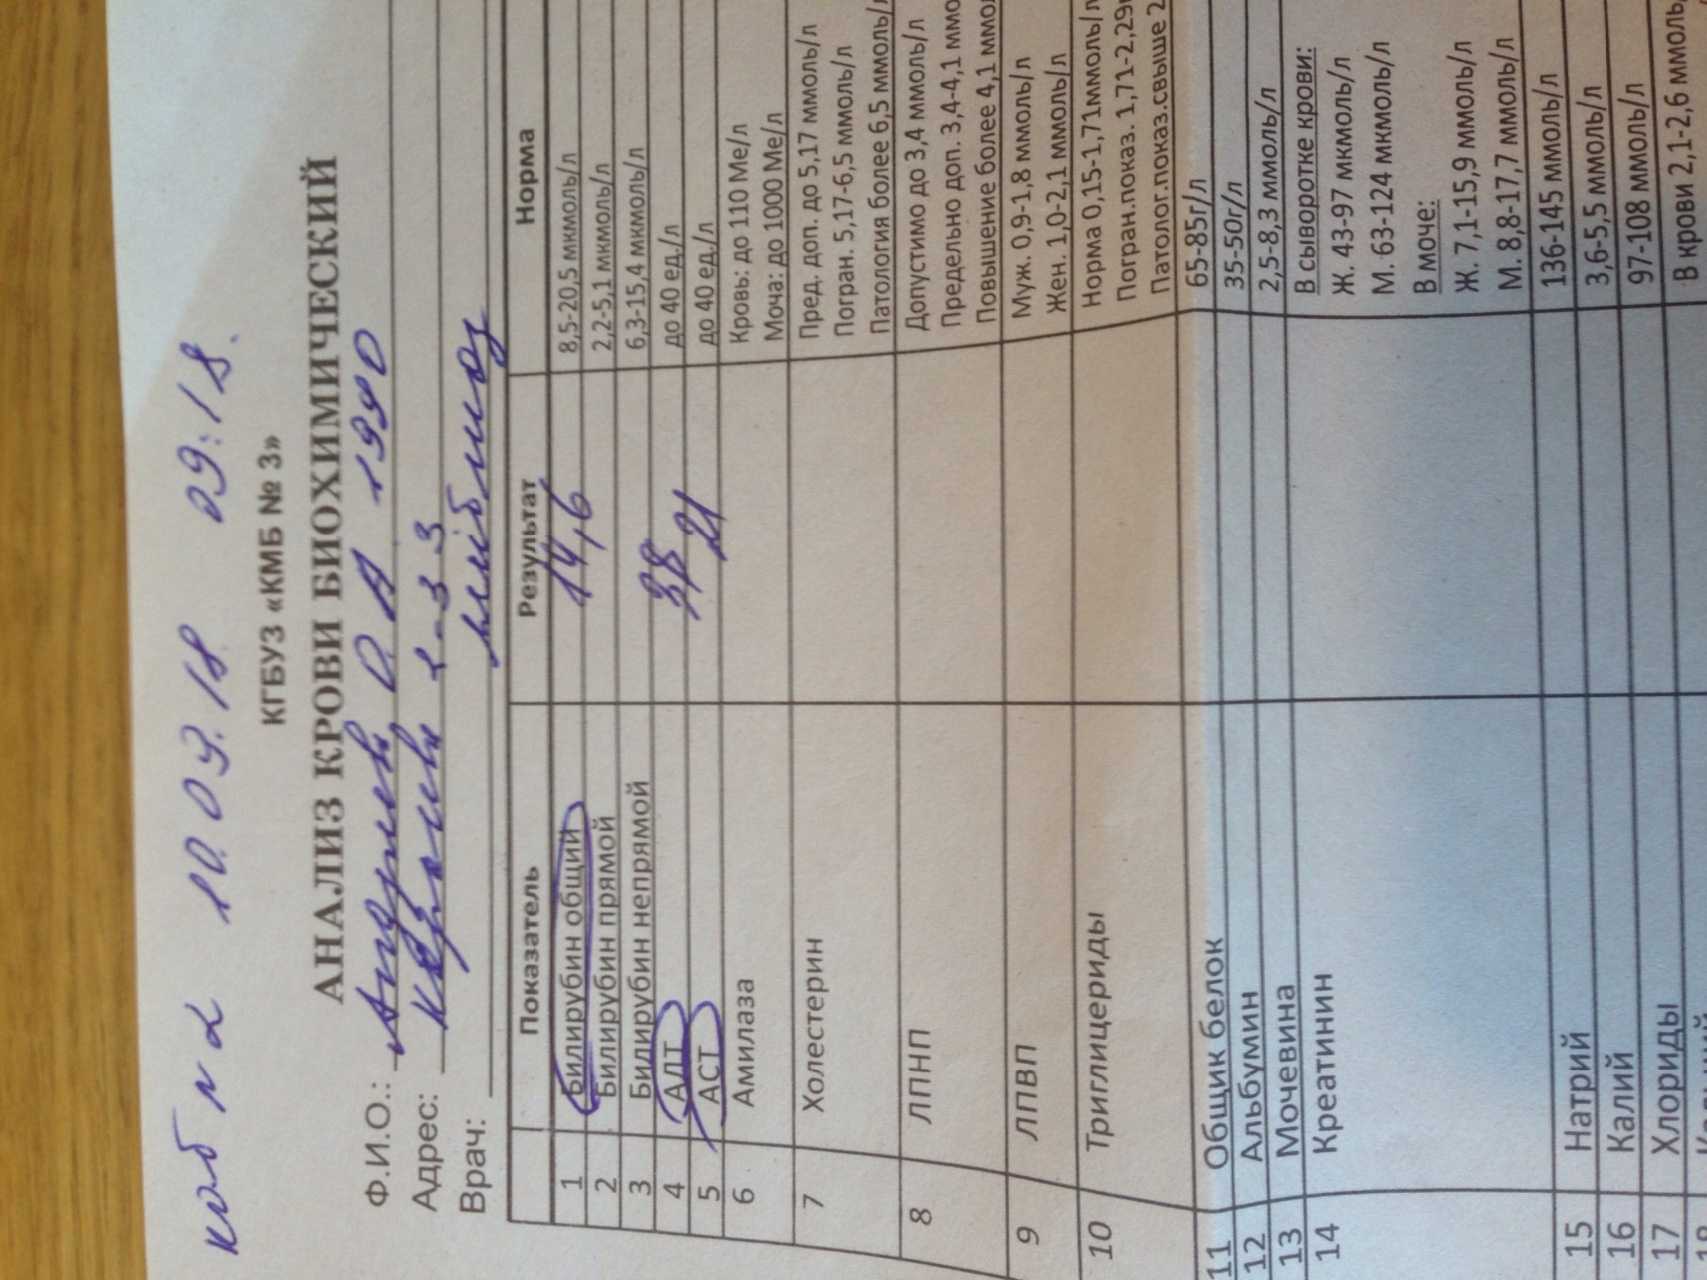 каб № 2 10.09.18 09:18.
КГБУЗ «КМБ № 3»
АНАЛИЗ КРОВИ БИОХИМИЧЕСКИЙ
Ф.И.О.: О. А 1990
Адрес: 2-33
Врач:
Показатель Результат Норма
1 Билирубин общий 14,6 8,5-20,5 мкмоль/л
2 Билирубин прямой 2,2-5,1 мкмоль/л
3 Билирубин непрямой 6,3-15,4 мкмоль/л
4 АЛТ 38 до 40 ед./л
5 АСТ 21 до 40 ед./л
6 Амилаза Кровь: до 110 Ме/л
Моча: до 1000 Ме/л
7 Холестерин Пред. доп. до 5,17 ммоль/л
Погран. 5,17-6,5 ммоль/л
Патология более 6,5 ммоль/л
8 ЛПНП Допустимо до 3,4 ммоль/л
Предельно доп. 3,4-4,1 ммо
Повышение более 4,1 ммо
9 ЛПВП Муж. 0,9-1,8 ммоль/л
Жен. 1,0-2,1 ммоль/л
10 Триглицериды Норма 0,15-1,71ммоль/л
Погран.показ. 1,71-2,29
Патолог.показ.свыше 2
11 Общик белок 65-85г/л
12 Альбумин 35-50г/л
13 Мочевина 2,5-8,3 ммоль/л
14 Креатинин В сыворотке крови:
Ж. 43-97 мкмоль/л
М. 63-124 мкмоль/л
В моче:
Ж. 7,1-15,9 ммоль/л
М. 8,8-17,7 ммоль/л
15 Натрий 136-145 ммоль/л
16 Калий 3,6-5,5 ммоль/л
17 Хлориды 97-108 ммоль/л
В крови 2,1-2,6 ммоль